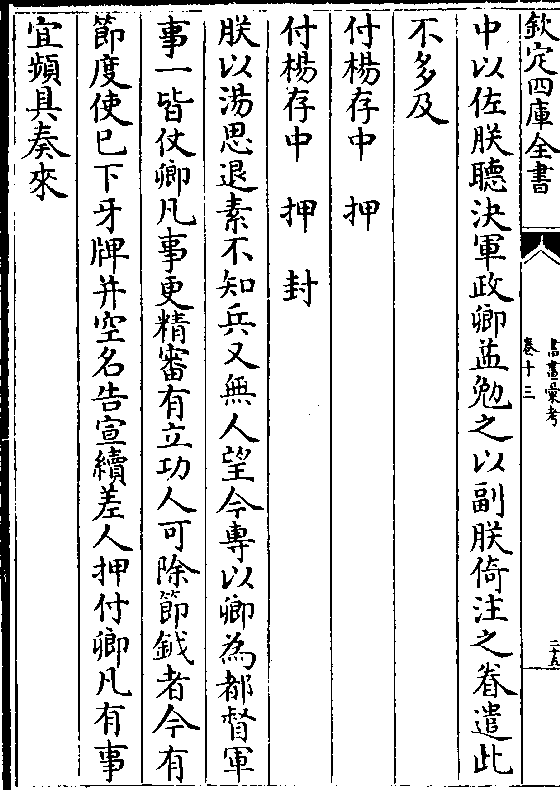 欽定四庫全書
書畫彙考
卷十三
二十五
中以佐朕聽決軍政卿益勉之以副朕倚注之眷遣此
不多及
付楊存中　押
付楊存中　押　封
朕以湯思退素不知兵又無人望今專以卿為都督軍
事一皆仗卿凡事更精審有立功人可除節鉞者今有
節度使已下牙牌并空名告宣續差人押付卿凡有事
宜頻具奏來